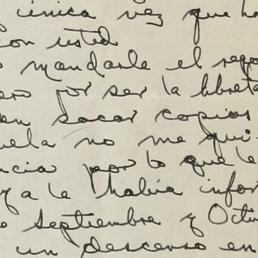 única vez que ha
con usted
mandarle el repo
ero por ser la libreta
en sacar copias
uela no me qui-
ncia por lo que le
ya le había infor
septiembre y Octu
un descenso en